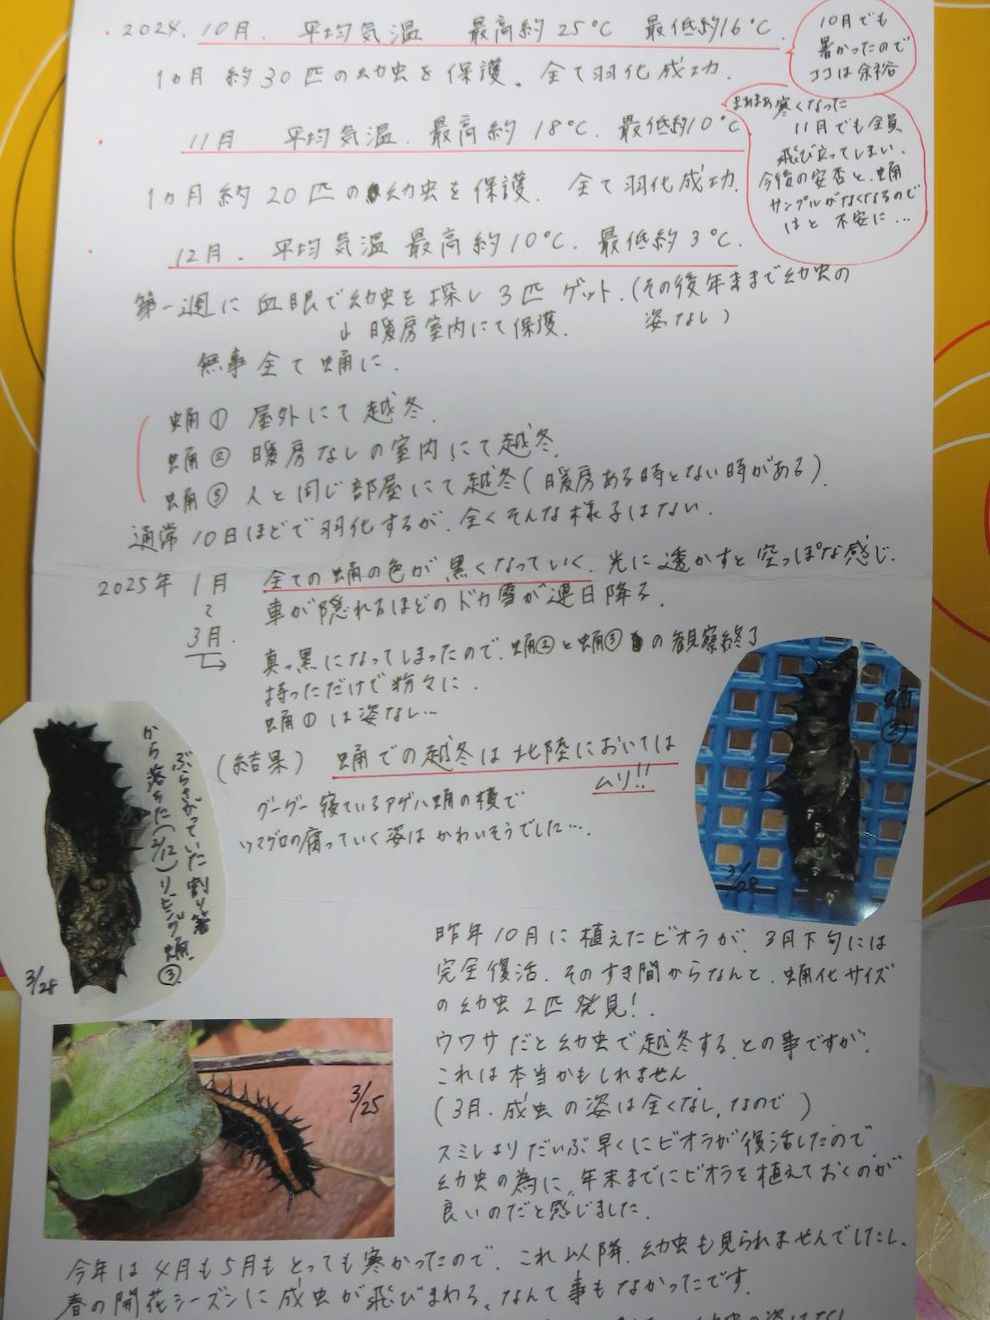 2024. 10月. 平均気温 最高約25℃ 最低約16℃
10月でも
暑かったので
ココは余裕
1ヵ月 約30匹の幼虫を保護。全て羽化成功.
11月 平均気温. 最高約18℃. 最低約10℃
まあまあ寒くなった
11月でも全員
飛び立ってしまい.
今後の安否と、蛹
サンプルがなくなるので
はと 不安に…
1ヵ月約20匹の幼虫を保護. 全て羽化成功.
12月. 平均気温 最高約10℃. 最低約3℃.
第一週に血眼で幼虫を探し3匹ゲット.(その後年末まで幼虫の
姿なし)
↓暖房室内にて保護.
無事全て蛹に.
蛹① 屋外にて越冬.
蛹② 暖房なしの室内にて越冬.
蛹③ 人と同じ部屋にて越冬(暖房ある時とない時がある).
通常10日ほどで羽化するが、全くそんな様子はない.
2025年 1月 全ての蛹の色が黒くなっていく. 光に透かすと空っぽな感じ.
〜 車が隠れるほどのドカ雪が連日降る.
3月.
真っ黒になってしまったので、蛹②と蛹③の観察終了
持っただけで粉々に.
蛹①は姿なし…
(結果) 蛹での越冬は北陸においては
ムリ!!
グーグー寝ているアゲハ蛹の横で
ツマグロの腐っていく姿はかわいそうでした….
ぶらさがっていた割り箸
から落ちた(2/12)リビング蛹.
③
3/28
蛹
②
3/28
昨年10月に植えたビオラが、3月下旬には
完全復活. そのすき間からなんと、蛹化サイズ
の幼虫2匹発見!.
ウワサだと幼虫で越冬する、との事ですが、
これは本当かもしれません
(3月. 成虫の姿は全くなし、なので)
スミレよりだいぶ早くにビオラが復活したので、
幼虫の為に、年末までにビオラを植えておくのが
良いのだと感じました.
3/25
今年は4月も5月もとっても寒かったので、これ以降、幼虫も見られませんでしたし、
春の開花シーズンに成虫が飛びまわる、なんて事もなかったです.